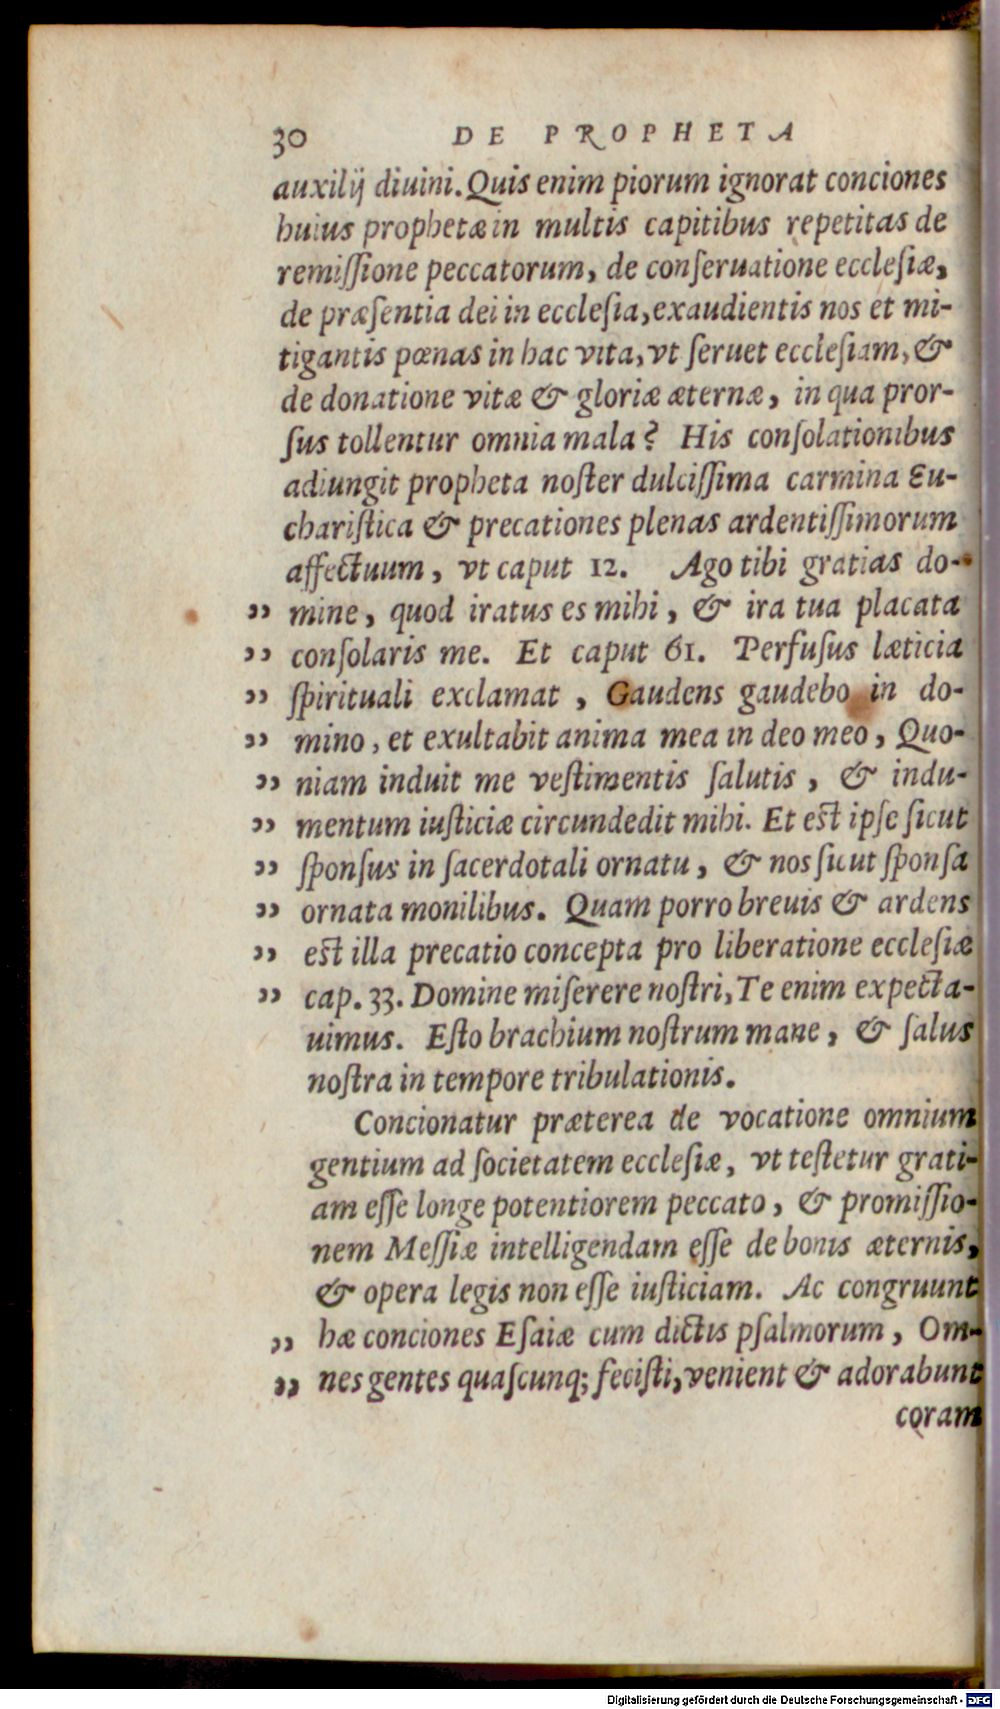 30 DE PROPHETA
auxilij diuini. Quis enim piorum ignorat conciones
huius prophetæ in multis capitibus repetitas de
remiſſione peccatorum, de conſeruatione eccleſiæ,
de præſentia dei in eccleſia, exaudientis nos et mi-
tigantis pœnas in hac vita, vt ſeruet eccleſiam, &
de donatione vitæ & gloriæ æternæ, in qua pror-
ſus tollentur omnia mala? His conſolationibus
adiungit propheta noſter dulciſſima carmina Eu-
chariſtica & precationes plenas ardentiſſimorum
affectuum, vt caput 12. Ago tibi gratias do-
” mine, quod iratus es mihi, & ira tua placata
” conſolaris me. Et caput 61. Perfuſus læticia
” ſpirituali exclamat, Gaudens gaudebo in do-
” mino, et exultabit anima mea in deo meo, Quo-
” niam induit me veſtimentis ſalutis, & indu-
” mentum iuſticiæ circundedit mihi. Et eſt ipſe ſicut
” ſponſus in ſacerdotali ornatu, & nos ſicut ſponſa
” ornata monilibus. Quam porro breuis & ardens
” eſt illa precatio concepta pro liberatione eccleſiæ
” cap. 33. Domine miſerere noſtri, Te enim expecta-
uimus. Eſto brachium noſtrum mane, & ſalus
noſtra in tempore tribulationis.
Concionatur præterea de vocatione omnium
gentium ad ſocietatem eccleſiæ, vt teſtetur grati-
am eſſe longe potentiorem peccato, & promiſſio-
nem Meſſiæ intelligendam eſſe de bonis æternis,
& opera legis non eſſe iuſticiam. Ac congruunt
” hæ conciones Eſaiæ cum dictis pſalmorum, Om-
” nes gentes quaſcunq; feciſti, venient & adorabunt
coram
Digitalisierung gefördert durch die Deutsche Forschungsgemeinschaft - DFG